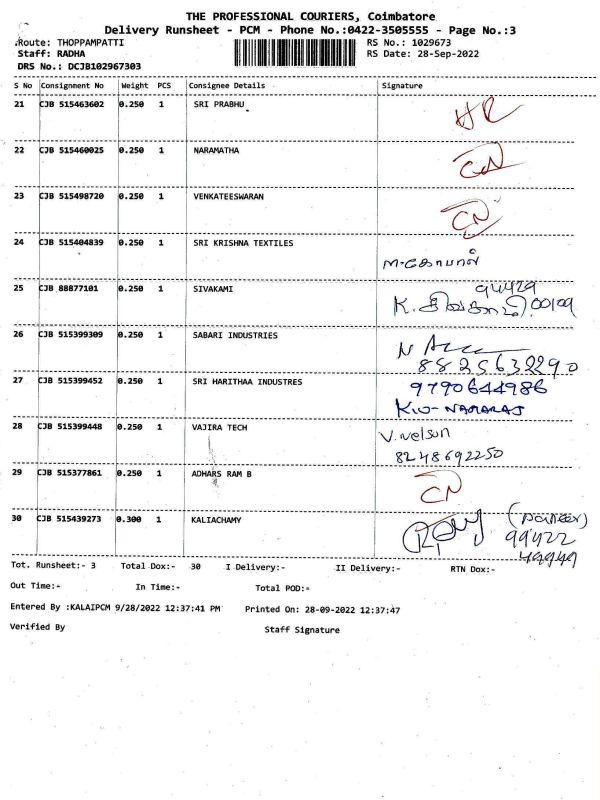 THE PROFESSIONAL COURIERS, Coimbatore
Delivery Runsheet - PCM - Phone No.:0422-3505555 - Page No.:3
Route: THOPPAMPATTI RS No.: 1029673
Staff: RADHA RS Date: 28-Sep-2022
DRS No.: DCJB102967303
S No Consignment No Weight PCS Consignee Details Signature
21 CJB 515463602 0.250 1 SRI PRABHU
22 CJB 515460025 0.250 1 NARAMATHA CN
23 CJB 515498720 0.250 1 VENKATEESWARAN CN
24 CJB 515404839 0.250 1 SRI KRISHNA TEXTILES
M.கோபால்
25 CJB 88877101 0.250 1 SIVAKAMI 94429
K. சிவகாமி 00109
26 CJB 515399309 0.250 1 SABARI INDUSTRIES
8825632290
27 CJB 515399452 0.250 1 SRI HARITHAA INDUSTRES 9790644986
28 CJB 515399448 0.250 1 VAJIRA TECH V. Nelson
8248692250
29 CJB 515377861 0.250 1 ADHARS RAM B CN
30 CJB 515439273 0.300 1 KALIACHAMY
99422
49949
Tot. Runsheet:- 3 Total Dox:- 30 I Delivery:- II Delivery:- RTN Dox:-
Out Time:- In Time:- Total POD:=
Entered By :KALAIPCM 9/28/2022 12:37:41 PM Printed On: 28-09-2022 12:37:47
Verified By Staff Signature